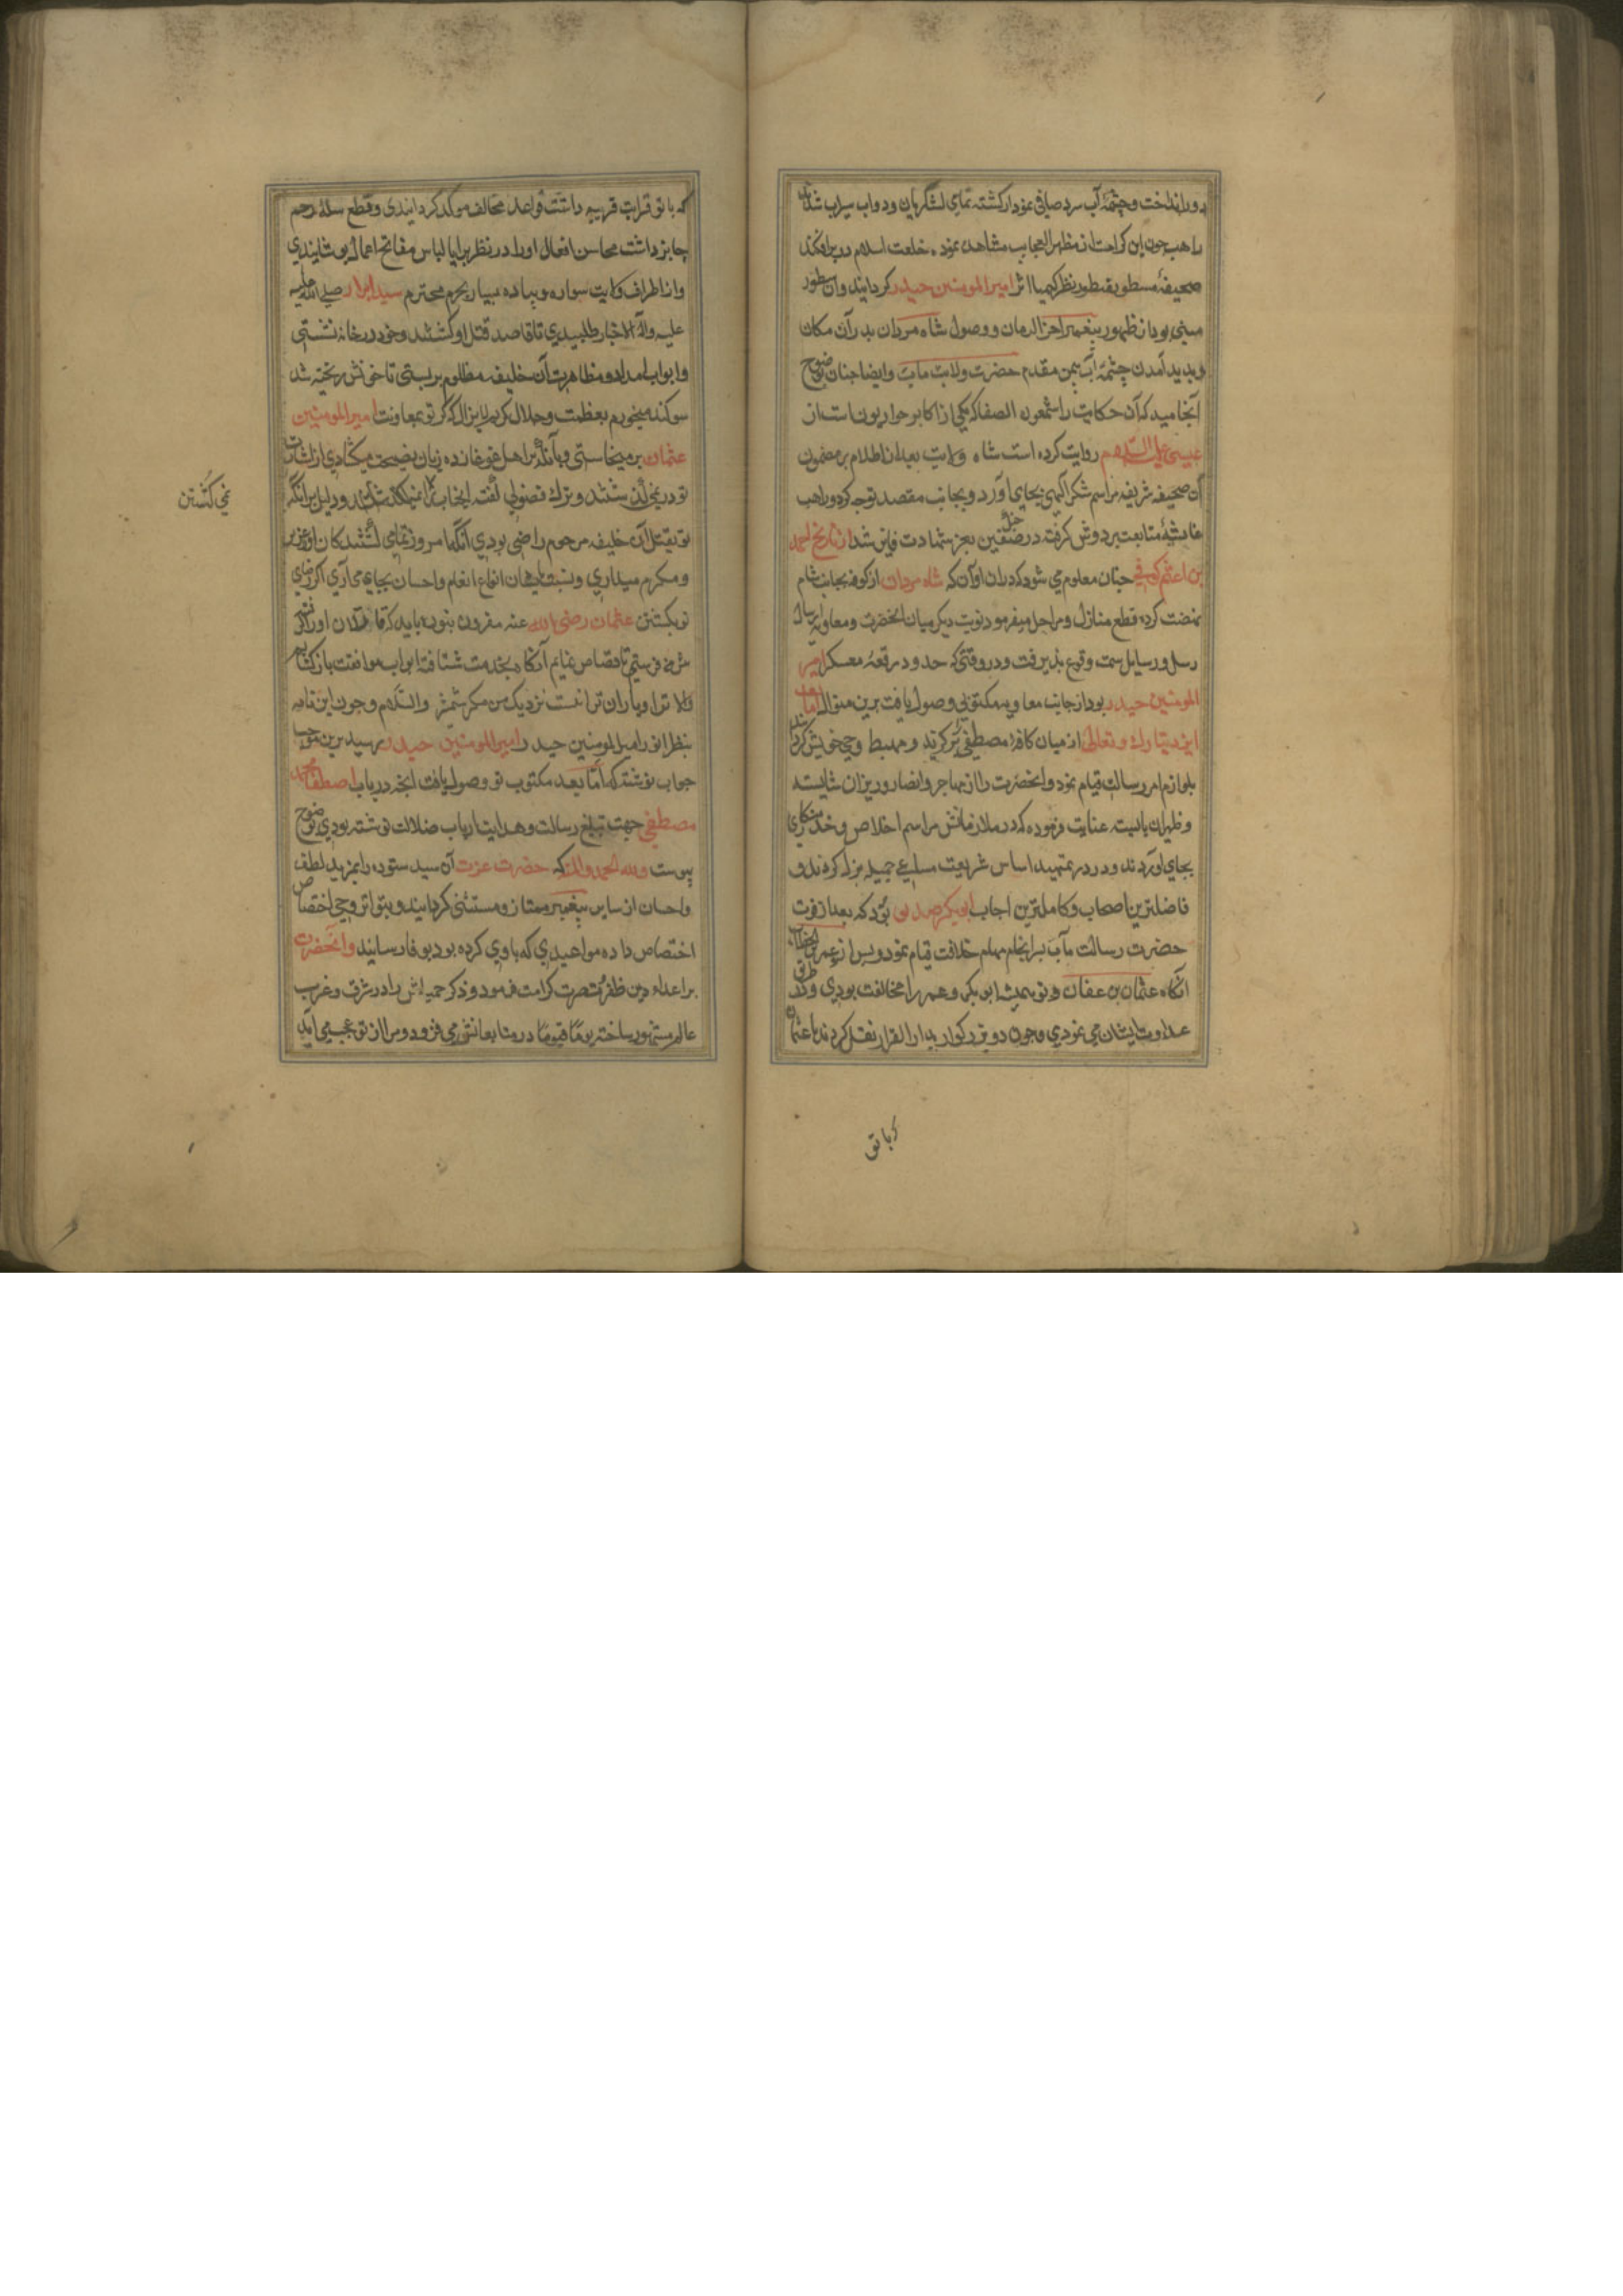 دور انداخت و چشمهٔ آب سرد صافی نمودار کشته تمامی لشکریان و دواب سیراب شدند
راهب چون این کرامت از مظهر العجایب مشاهده نمود خلعت اسلام در بر افکند
صحیفهٔ مسطور بنظر کیمیا اثر امیر المومنین حیدر کردانید و آن سطور
مبنی بود از ظهور پیغمبر آخر الزمان و وصول شاه مردان بدر آن مکان
و پدید آمدن چشمهٔ آب بیمن مقدم حضرت ولایت ماب و ایضا چنان بوضوح
آنجامید که آن حکایت را شمعون الصفا که یکی از اکابر حواریون است از
عیسی علیه السلام روایت کرده است شاه ولایت بعد از اطلاع بر مضمون
آن صحیفه شریفه مراسم شکر الهی بجای آورد و بجانب مقصد توجه کرد و راهب
غاشیهٔ متابعت بر دوش کرفت در جنک صفین بعز شهادت فایز شد از تاریخ احمد
بن اعثم کوفی چنان معلوم می شود که در ان اوآن که شاه مردان از کوفه بجانب شام
نهضت کرده قطع منازل و مراحل میفرمود نوبت دیکر میان انحضرت و معاویه ارسال
رسل و رسایل سمت وقوع پذیرفت و در وقتی که حدود رقعه معسکر امیر
المومنین حیدر بود از جانب معاویه مکتوبی وصول یافت برین منوال اما بعد
ایزد تبارک و تعالی از میان کافهٔ مصطفی برکزید و مهبط وحی خویش کردانید
بلوازم امر رسالت قیام نمود و انحضرت را از مهاجر و انصار وزیران شایسته
و ظهیران بایسته عنایت فرموده که در ملازمانش مراسم اخلاص و خدمتکاری
بجای اوردند و در تمهید اساس شریعت مساعی جمیله مبذول کردند و
فاضلترین اصحاب و کاملترین احباب ابو بکر صدیق بود که بعد از فوت
حضرت رسالت مآب بسرانجام مهام خلافت قیام نمود و پس از عمر بن الخطاب
آنکاه عثمان بن عفان و تو همیشه ابو بکر و عمر را مخالفت بودی و طرق
عداوت ایشان می نمودی و چون دو بزرکوار بدار القرار نقل کردند با عثمان
که با تو
که با تو قرابت قریبه داشت قواعد مخالف موکد کردانیدی و قطع سلهٔ رحم
جایز داشت محاسن افعال او را در نظر برایا لباس مفاتح اعمال پوشانیدی
و از اطراف ولایت سواره و پیاده بسیار بحرم محترم سید ابرار صلی الله علیه
علیه و آله الاخیار طلبیدی تا قاصد قتل او کشتند و خود در خانه نشستی
و ابواب امداد و مظاهرت آن خلیفه مظلوم بر بستی تا خونش ریخته شد
سوکند میخورم بعظمت و جلال کریم لایزال که اکر تو بمعاونت امیر المومنین
عثمان بر میخاستی و اهل غوغا زده زبان نصیحت میکشادی از اشارت
تو در نمی کذشتند و ترک فضولی کفته و دلیل بر آنکه
تو بقتل آن خلیفه مرحوم راضی بودی آنکه امروز تمامی کشندکان او را عزیز
و مکرم میداری و نسبت بایشان انواع انعام و احسان بجای می آری اکر رضای
تو بکشتن عثمان رضی الله عنه مقرون نبوده باید که قاتلان او را نزد
من می فرستی تا قصاص نمایم آنکاه بخدمت شتافته ابواب موافقت باز کشایم
والا ترا و یاران ترا نیست نزدیک من مکر شمشیر والسلام و چون این نامه
بنظر انور امیر المومنین حیدر امیر المومنین حیدر رسید برین موجب
جواب نوشته که اما بعد مکتوب تو وصول یافت انچه در باب اصطفا محمد
مصطفی جهت تبلیغ رسالت و هدایت ارباب ضلالت نوشته بودی بوضوح
پیوست ولله الحمد والمنة که حضرت عزت آن سید ستوده را بمزید لطف
و احسان از سایر پیغمبر ممتاز و مستثنی کردانید و بتواتر وحی اختصاص
اختصاص داده مواعیدی که با وی کرده بود بوفا رسانید و انحضرت
بر اعداء دین ظفر و نصرت کرامت فرمود و ذکر حمیداش را در شرق و غرب
عالم مشهور ساخته یوما فیوما در متابعانش می فزود و مرا از تو عجب می آید
نمی کشتن